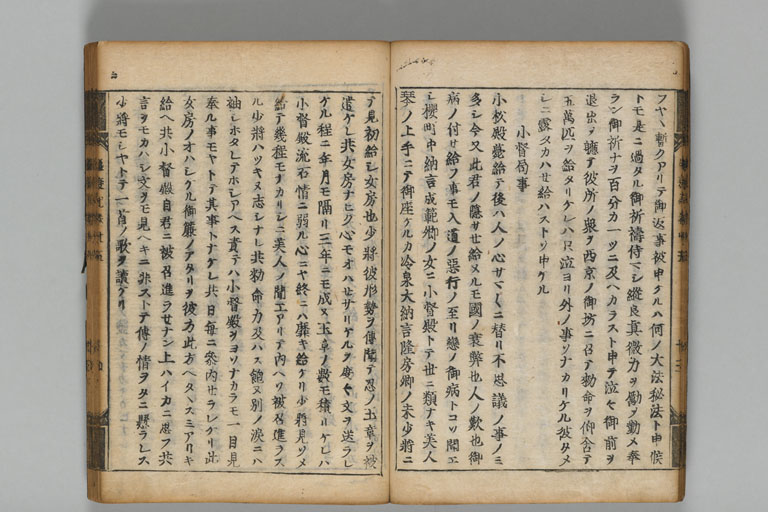 フヤヽ暫クアリテ御返事被申ケルハ何ノ大法秘法ト申候
トモ是ニ過タル御祈禱侍マシ縦良真微力ヲ励ヲ勤メ奉
ラン御祈ナヲ百分カ一ツニ及ヘカラスト申テ泣々御前ヲ
退出ヲ軈テ彼所ノ衆ヲ西京ノ御坊ニ召テ勅命ヲ仰含テ
五萬匹ヲ給タリケレハ只泣ヨリ外ノ事ソナカリケル彼タメ
シニ露タカハせ給ハストソ申ケル
小督局事
小松殿薨給テ後ハ人ノ心サマ〱ニ替リ不思議ノ事ノミ
多シ今又此君ノ隠サせ給ヌルモ國ノ衰弊也人ノ歎也御
病ノ付せ給フ事モ入道ノ惡行ノ至リ戀ノ御病トコソ聞エ
シ櫻町中納言成範卿ノ女ニ小督殿トテ世ニ類ナキ美人
琴ノ上手ニテ御座ケルカ冷泉大納言隆房卿ノ未少将ニ
テ見初給シ女房也少将彼形勢ヲ傳聞テ忍ノ玉章ヲ被
遣ケレ共女房ナヒク心モオハせサリケルヲ度々文ヲ送ラレ
ケル程ニ年月モ隔リ三年ニモ成ヌ玉章ノ數モ積リケレハ
小督殿流石情ニ弱ル心ニヤ終ニハ靡キ給ケリ少将見ソメ
給テ幾程モナカリシニ美人ノ聞エアリテ内ヘソ被召進ラス
ル少将ハツキヌ志シナレ共勅命力及ハス飽ヌ別ノ涙ニハ
袖シホタレテホシアヘス責テハ小督殿ヲヨソナカラモ一目見
奉ル事モヤトテ其事トナケレ共日毎ニ參内せラレケリ此
女房ノオハシケル御簾ノアタリヲ彼方此方ヘタヽスミアリキ
給ヘ共小督殿自君ニ被召進ラせナン上ハイカニ思フ共
言ヲモカハシ文ヲモ見ヘキニ非ストテ傳ノ情ヲタニ懸ラレス
少將モシヤトテ一首ノ歌ヲ讀ケリ